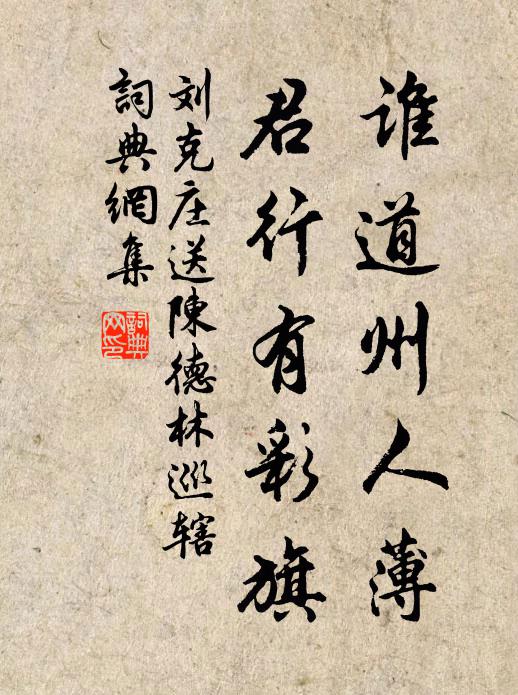 谁道州人薄
君行有彩旗
刘克庄送陳德林巡辖
詞典網集
詞典
网印